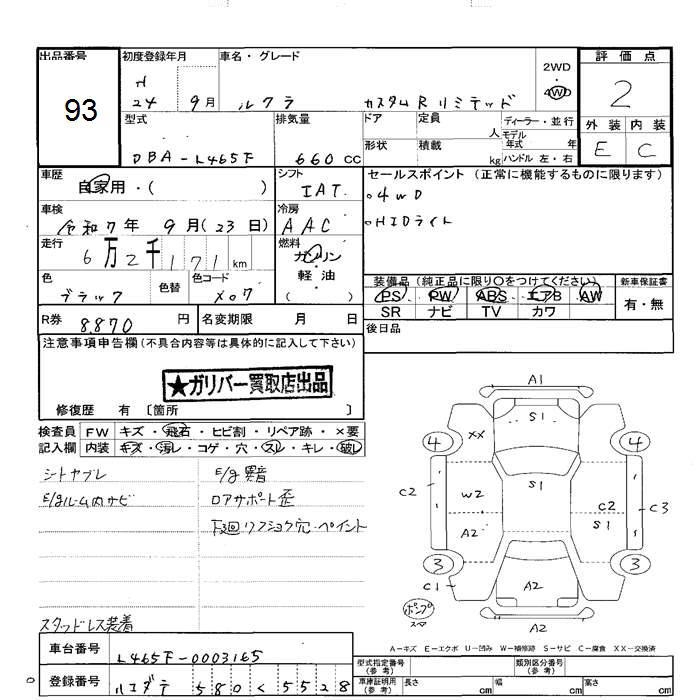 出品番号
93
初度登録年月
H
24 9月
車名・グレード
ルクラ カスタムRリミテッド
2WD
・
4WD
評価点
2
外装 内装
E C
型式
DBA-L465F
排気量
660 cc
ドア
定員
人
ディーラー・並行
モデル
年式 年
形状
積載
kg
ハンドル 左・右
車歴
自家用・( )
シフト
IAT
セールスポイント (正常に機能するものに限ります)
○4WD
○HIDライト
車検
令和7年 9月(23日)
冷房
AAC
走行
6万2千171km
燃料
ガソリン
・
軽油
( )
色
ブラック
色替
色コード
X07
装備品(純正品に限り○をつけてください)
PS PW ABS エアB AW
SR ナビ TV カワ
新車保証書
有・無
R券 8.870 円
名変期限 月 日
後日品
注意事項申告欄(不具合内容等は具体的に記入して下さい)
★ガリバー買取店出品
修復歴 有 〔箇所 〕
検査員
記入欄
FW キズ・飛石・ヒビ割・リペア跡・×要
内装 キズ・汚レ・コゲ・穴・スレ・キレ・破レ
シトヤブレ
E/gルーム内サビ
スタッドレス装着
E/g異音
ロアサポート歪
下廻りフショク穴・ペイント
A1
S1
XX
4
4
C2
W2
S1
C2
S1
C3
A2
3
3
C1
A2
ポンプ
スマ
A2
A-キズ E-エクボ U-凹み W-補修跡 S-サビ C-腐食 XX-交換済
車台番号 L465F-0003165
登録番号 ハコダテ 580 く 5528
型式指定番号
(参考)
類別区分番号
(参考)
車庫証明用
(参考)
長さ cm
幅 cm
高さ cm